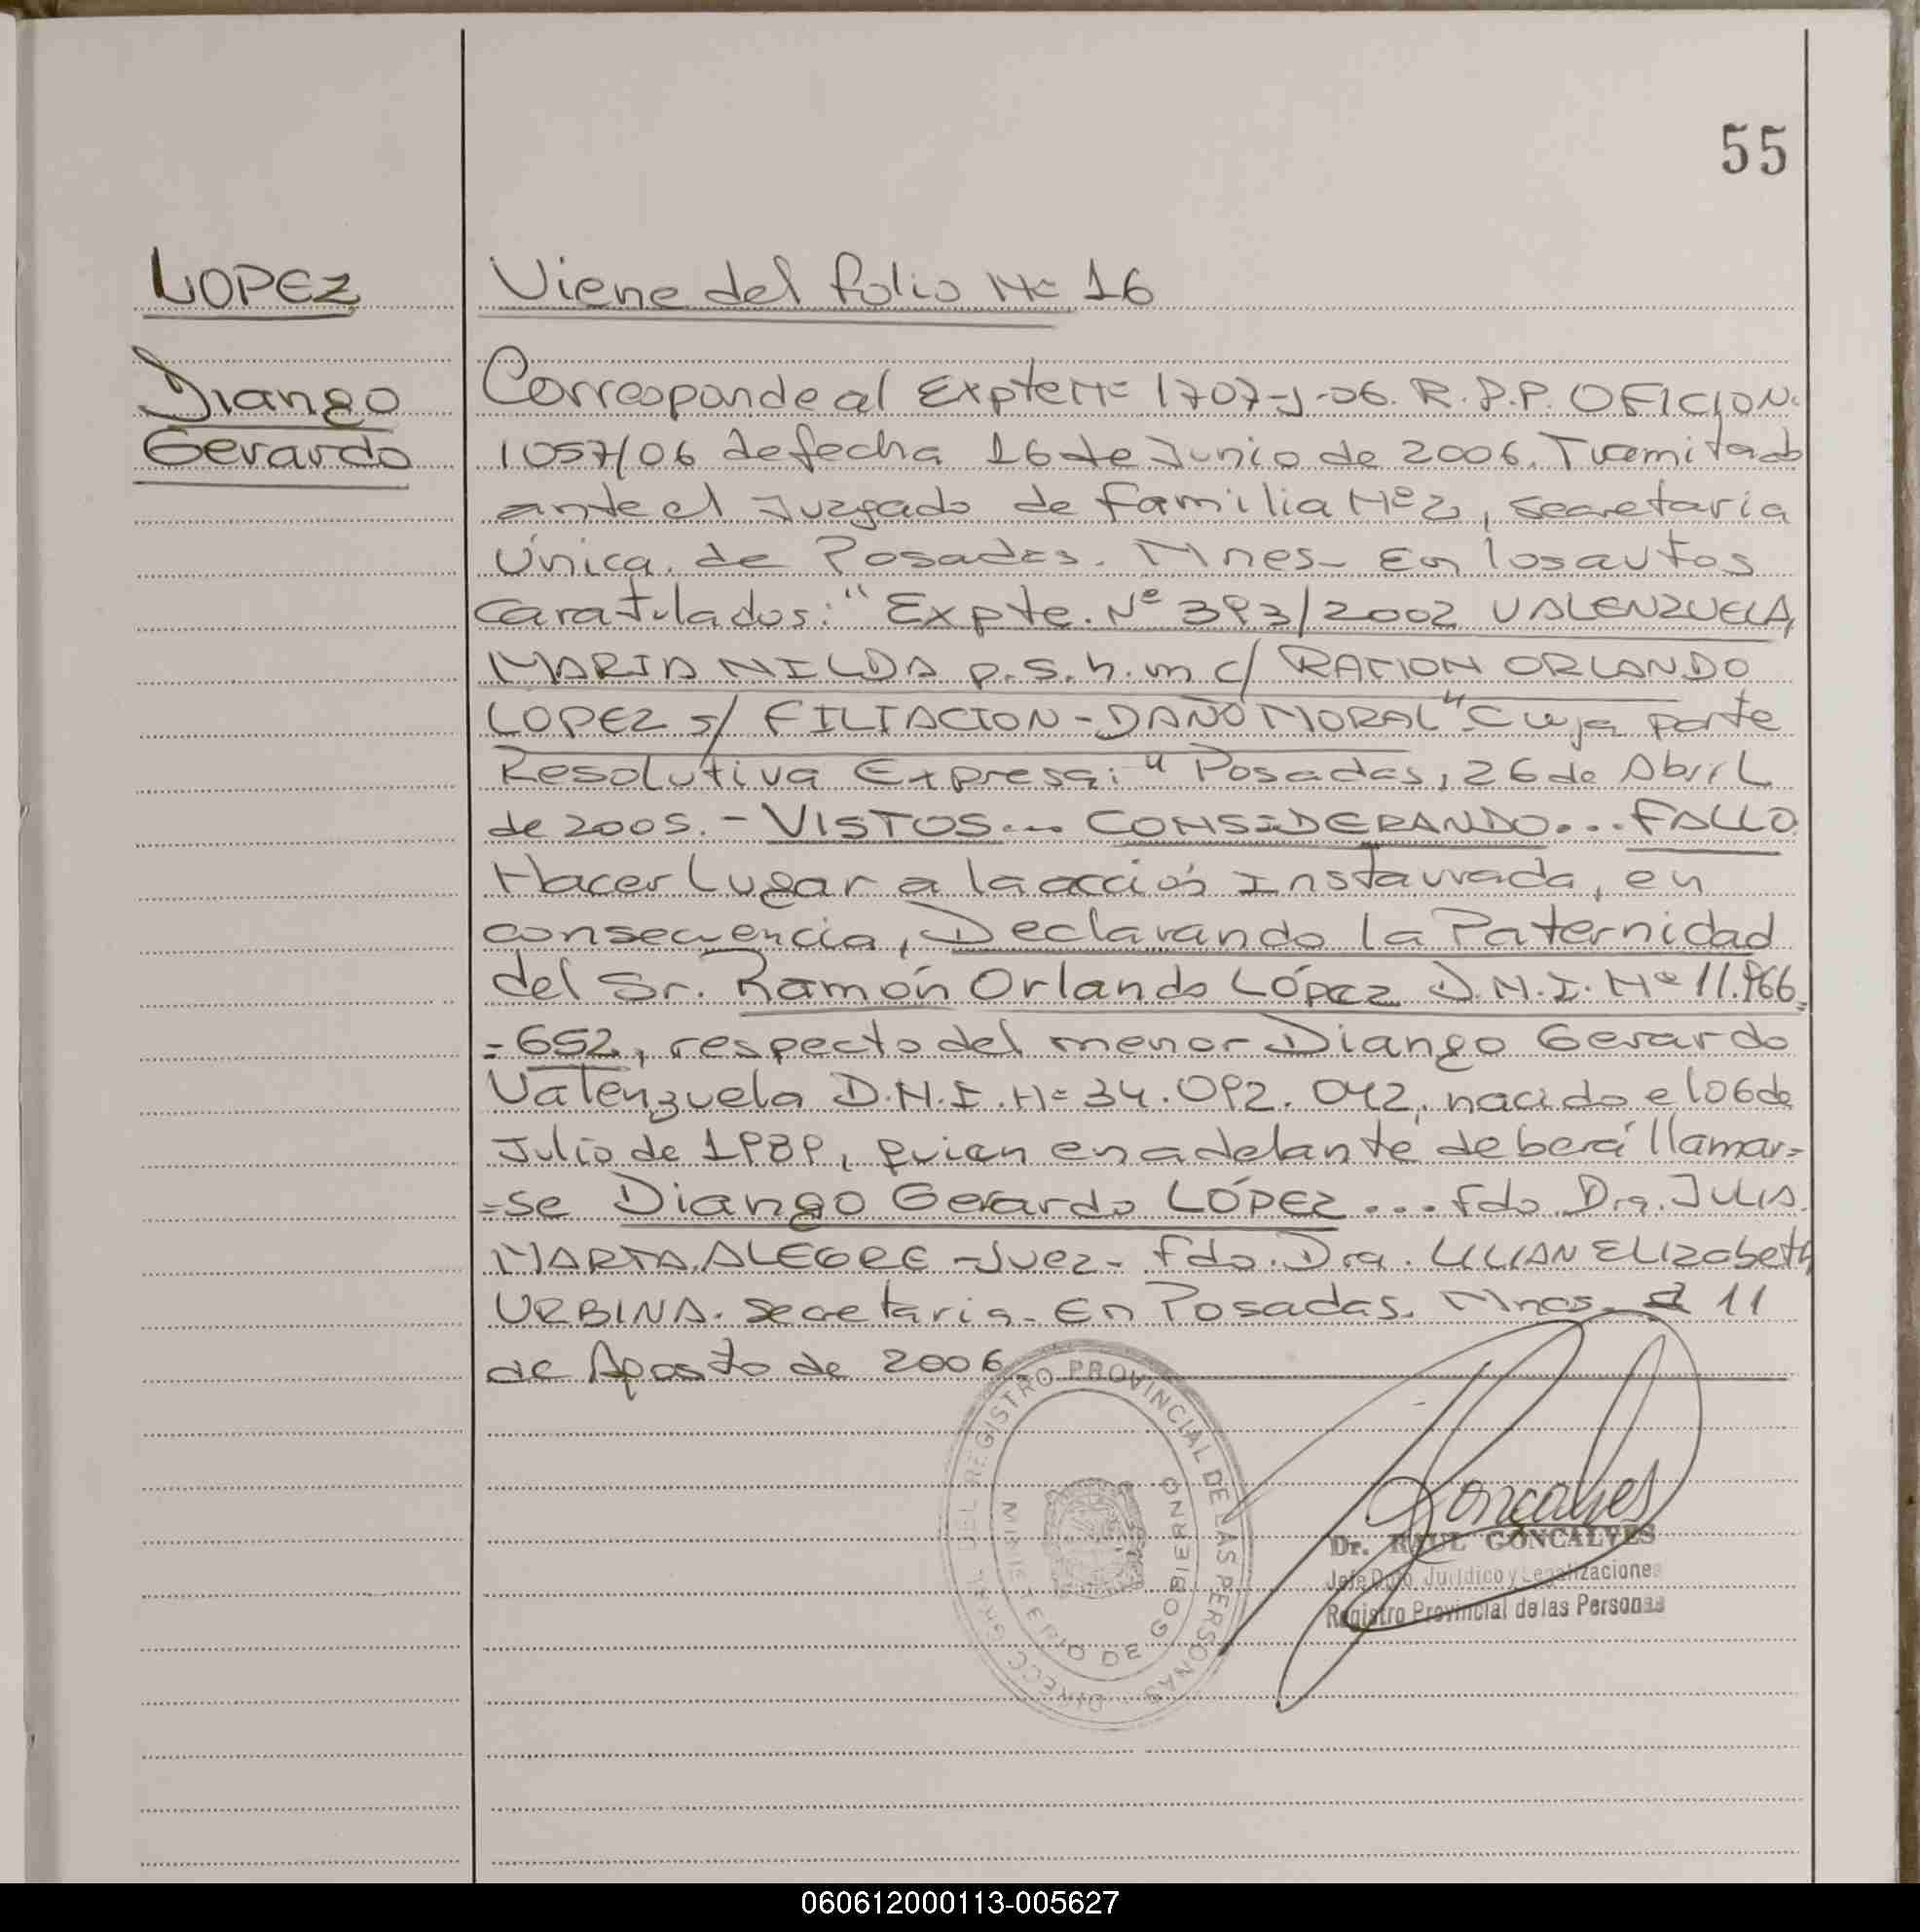 55
LOPEZ
Diango
Gerardo
Viene del folio Nº 16
Corresponde al Expte Nº 1707-J-06. R.P.P. OFICIO N.
1057/06 de fecha 16 de Junio de 2006. Tramitado
ante el Juzgado de familia Nº 2, secretaria
Única. de Posadas. Mnes- En los autos
caratulados: "Expte. Nº 393/2002 VALENZUELA,
MARIA NILDA p.s.h.m c/ RAMON ORLANDO
LOPEZ s/ FILIACION - DAÑO MORAL". Cuya parte
Resolutiva Expresa: "Posadas, 26 de Abril
de 2005. - VISTOS... CONSIDERANDO... FALLO.
Hacer Lugar a la acción Instaurada, en
consecuencia, Declarando la Paternidad
del Sr. Ramón Orlando López D.N.I. Nº 11.966=
=652, respecto del menor Diango Gerardo
Valenzuela D.N.I. Nº 34.092.042, nacido el 06 de
Julio de 1989, quien en adelante deberá llamar=
=se Diango Gerardo LÓPEZ... fdo. Dra. JULIA
MARTA ALEGRE - Juez - Fdo. Dra. LILIAN ELIZabeth
URBINA. secretaria. En Posadas. Mnes. a 11
de Agosto de 2006
DIRECC. GRAL. DEL REGISTRO PROVINCIAL DE LAS PERSONAS
MINISTERIO DE GOBIERNO
Goncalves
Dr. RAUL GONCALVES
Jefe Dpto. Jurídico y Legalizaciones
Registro Provincial de las Personas
060612000113-005627